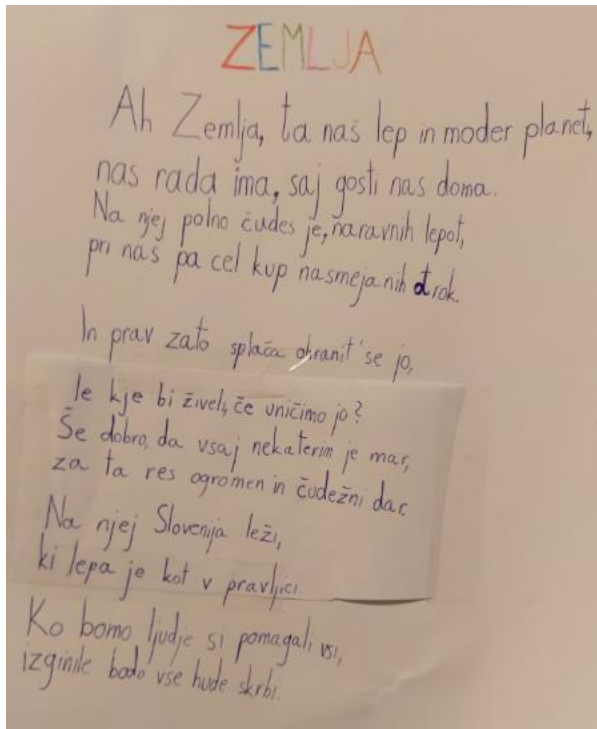 ZEMLJA
Ah Zemlja, ta naš lep in moder planet,
nas rada ima, saj gosti nas doma.
Na njej polno čudes je, naravnih lepot,
pri nas pa cel kup nasmejanih otrok.
In prav zato splača ohranit' se jo,
le kje bi živeli, če uničimo jo?
Še dobro, da vsaj nekaterim je mar,
za ta res ogromen in čudežni dar.
Na njej Slovenija leži,
ki lepa je kot v pravljici.
Ko bomo ljudje si pomagali vsi,
izginile bodo vse hude skrbi.